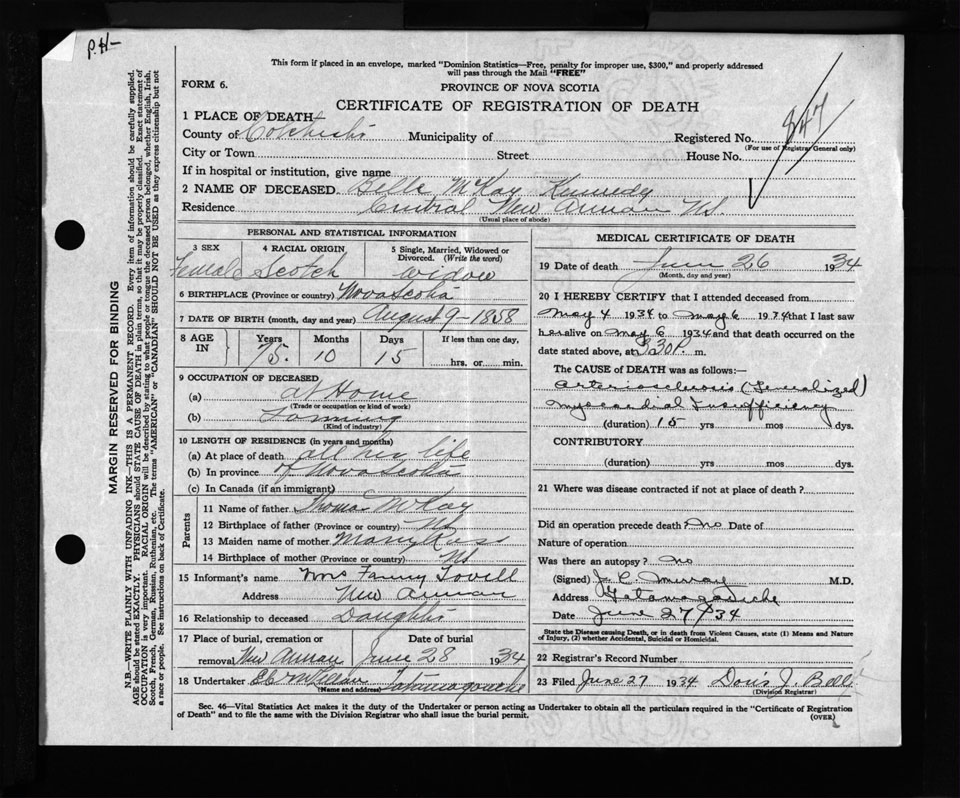 P.H-
This form if placed in an envelope, marked "Dominion Statistics—Free, penalty for improper use, $300," and properly addressed
will pass through the Mail "FREE"
FORM 6.
PROVINCE OF NOVA SCOTIA
CERTIFICATE OF REGISTRATION OF DEATH
1 PLACE OF DEATH
County of Colchester Municipality of Registered No. 847
(For use of Registrar General only)
City or Town Street House No.
If in hospital or institution, give name
2 NAME OF DECEASED. Belle McKay Kennedy
Residence Central New Annan NS.
(Usual place of abode)
PERSONAL AND STATISTICAL INFORMATION
3 SEX 4 RACIAL ORIGIN 5 Single, Married, Widowed or
Divorced. (Write the word)
Female Scotch widow
6 BIRTHPLACE (Province or country) Nova Scotia
7 DATE OF BIRTH (month, day and year) August 9-1858
8 AGE IN Years Months Days If less than one day,
75 10 15 hrs. or min.
9 OCCUPATION OF DECEASED
(a) at Home
(Trade or occupation or kind of work)
(b) Farming
(Kind of industry)
10 LENGTH OF RESIDENCE (in years and months)
(a) At place of death all her life
(b) In province of Nova Scotia
(c) In Canada (if an immigrant)
Parents
11 Name of father Thomas McKay
12 Birthplace of father (Province or country) NS
13 Maiden name of mother Mary Ross
14 Birthplace of mother (Province or country) NS
15 Informant's name Mrs Fanny
Address New Annan
16 Relationship to deceased Daughter
17 Place of burial, cremation or Date of burial
removal New Annan June 28 1934
18 Undertaker Tatamagouche
(Name and address)
MEDICAL CERTIFICATE OF DEATH
19 Date of death June 26 1934
(Month, day and year)
20 I HEREBY CERTIFY that I attended deceased from
May 4 1934 to May 6 1934 that I last saw
her alive on May 6 1934 and that death occurred on the
date stated above, at 30 P. m.
The CAUSE of DEATH was as follows:—
Arteriosclerosis (Generalized)
Myocardial Insufficiency
(duration) 15 yrs mos dys.
CONTRIBUTORY
(duration) yrs mos dys.
21 Where was disease contracted if not at place of death?
Did an operation precede death? no Date of
Nature of operation
Was there an autopsy? no
(Signed) J. C. Murray M.D.
Address Tatamagouche
Date June 27/34
State the Disease causing Death, or in death from Violent Causes, state (1) Means and Nature
of Injury, (2) whether Accidental, Suicidal or Homicidal.
22 Registrar's Record Number
23 Filed June 27 1934 Doris J. Bell
(Division Registrar)
Sec. 46—Vital Statistics Act makes it the duty of the Undertaker or person acting as Undertaker to obtain all the particulars required in the "Certificate of Registration
of Death" and to file the same with the Division Registrar who shall issue the burial permit.
(OVER)
MARGIN RESERVED FOR BINDING
N.B.—WRITE PLAINLY WITH UNFADING INK—THIS IS A PERMANENT RECORD. Every item of information should be carefully supplied.
AGE should be stated EXACTLY. PHYSICIANS should STATE CAUSE OF DEATH in plain terms, so that it may be properly classified. Exact statement of
OCCUPATION is very important. RACIAL ORIGIN will be described by stating to what people or tongue the deceased person belonged, whether English, Irish,
Scotch, French, German, Russian, Ruthenian, etc. The terms "AMERICAN" or "CANADIAN" SHOULD NOT BE USED as they express citizenship but not
a race or people. See instructions on back of Certificate.